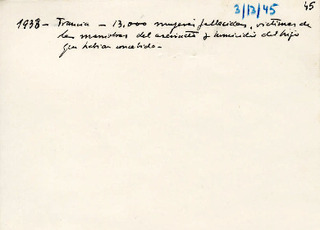 3/13/45 45
1938 - Francia - 13,000 mujeres fallecidas, víctimas de
las maniobras del asesinato y homicidio del hijo
que habían concebido -